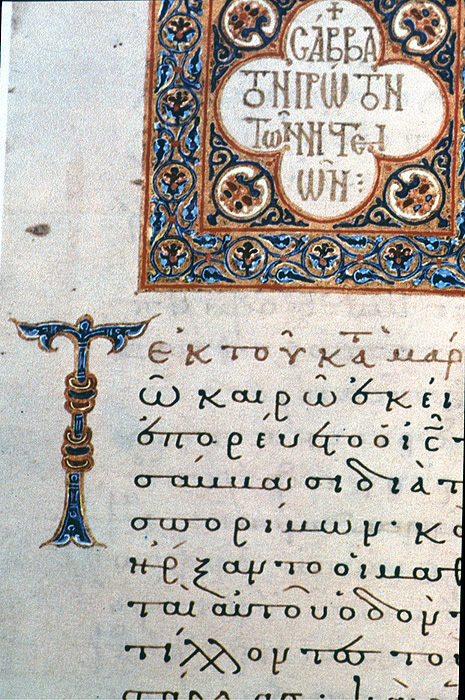 +
ϹΆΒΒΑ
ΤΟΝ ΠΡΏΤΟΝ
ΤΩ͂Ν ΝΗϹΤΕΙ
ΩΝ:
Ἐκ τοῦ κατὰ μαρ
Τῶ καιρῶ ἐκεί
ἐπορεύετο ὁ ἰς
σάββασι διὰ τ
σπορίμων· κα
ἤρξαντο οἱ μαθ
ταὶ αὐτοῦ ὁδὸν
τίλλοντες το